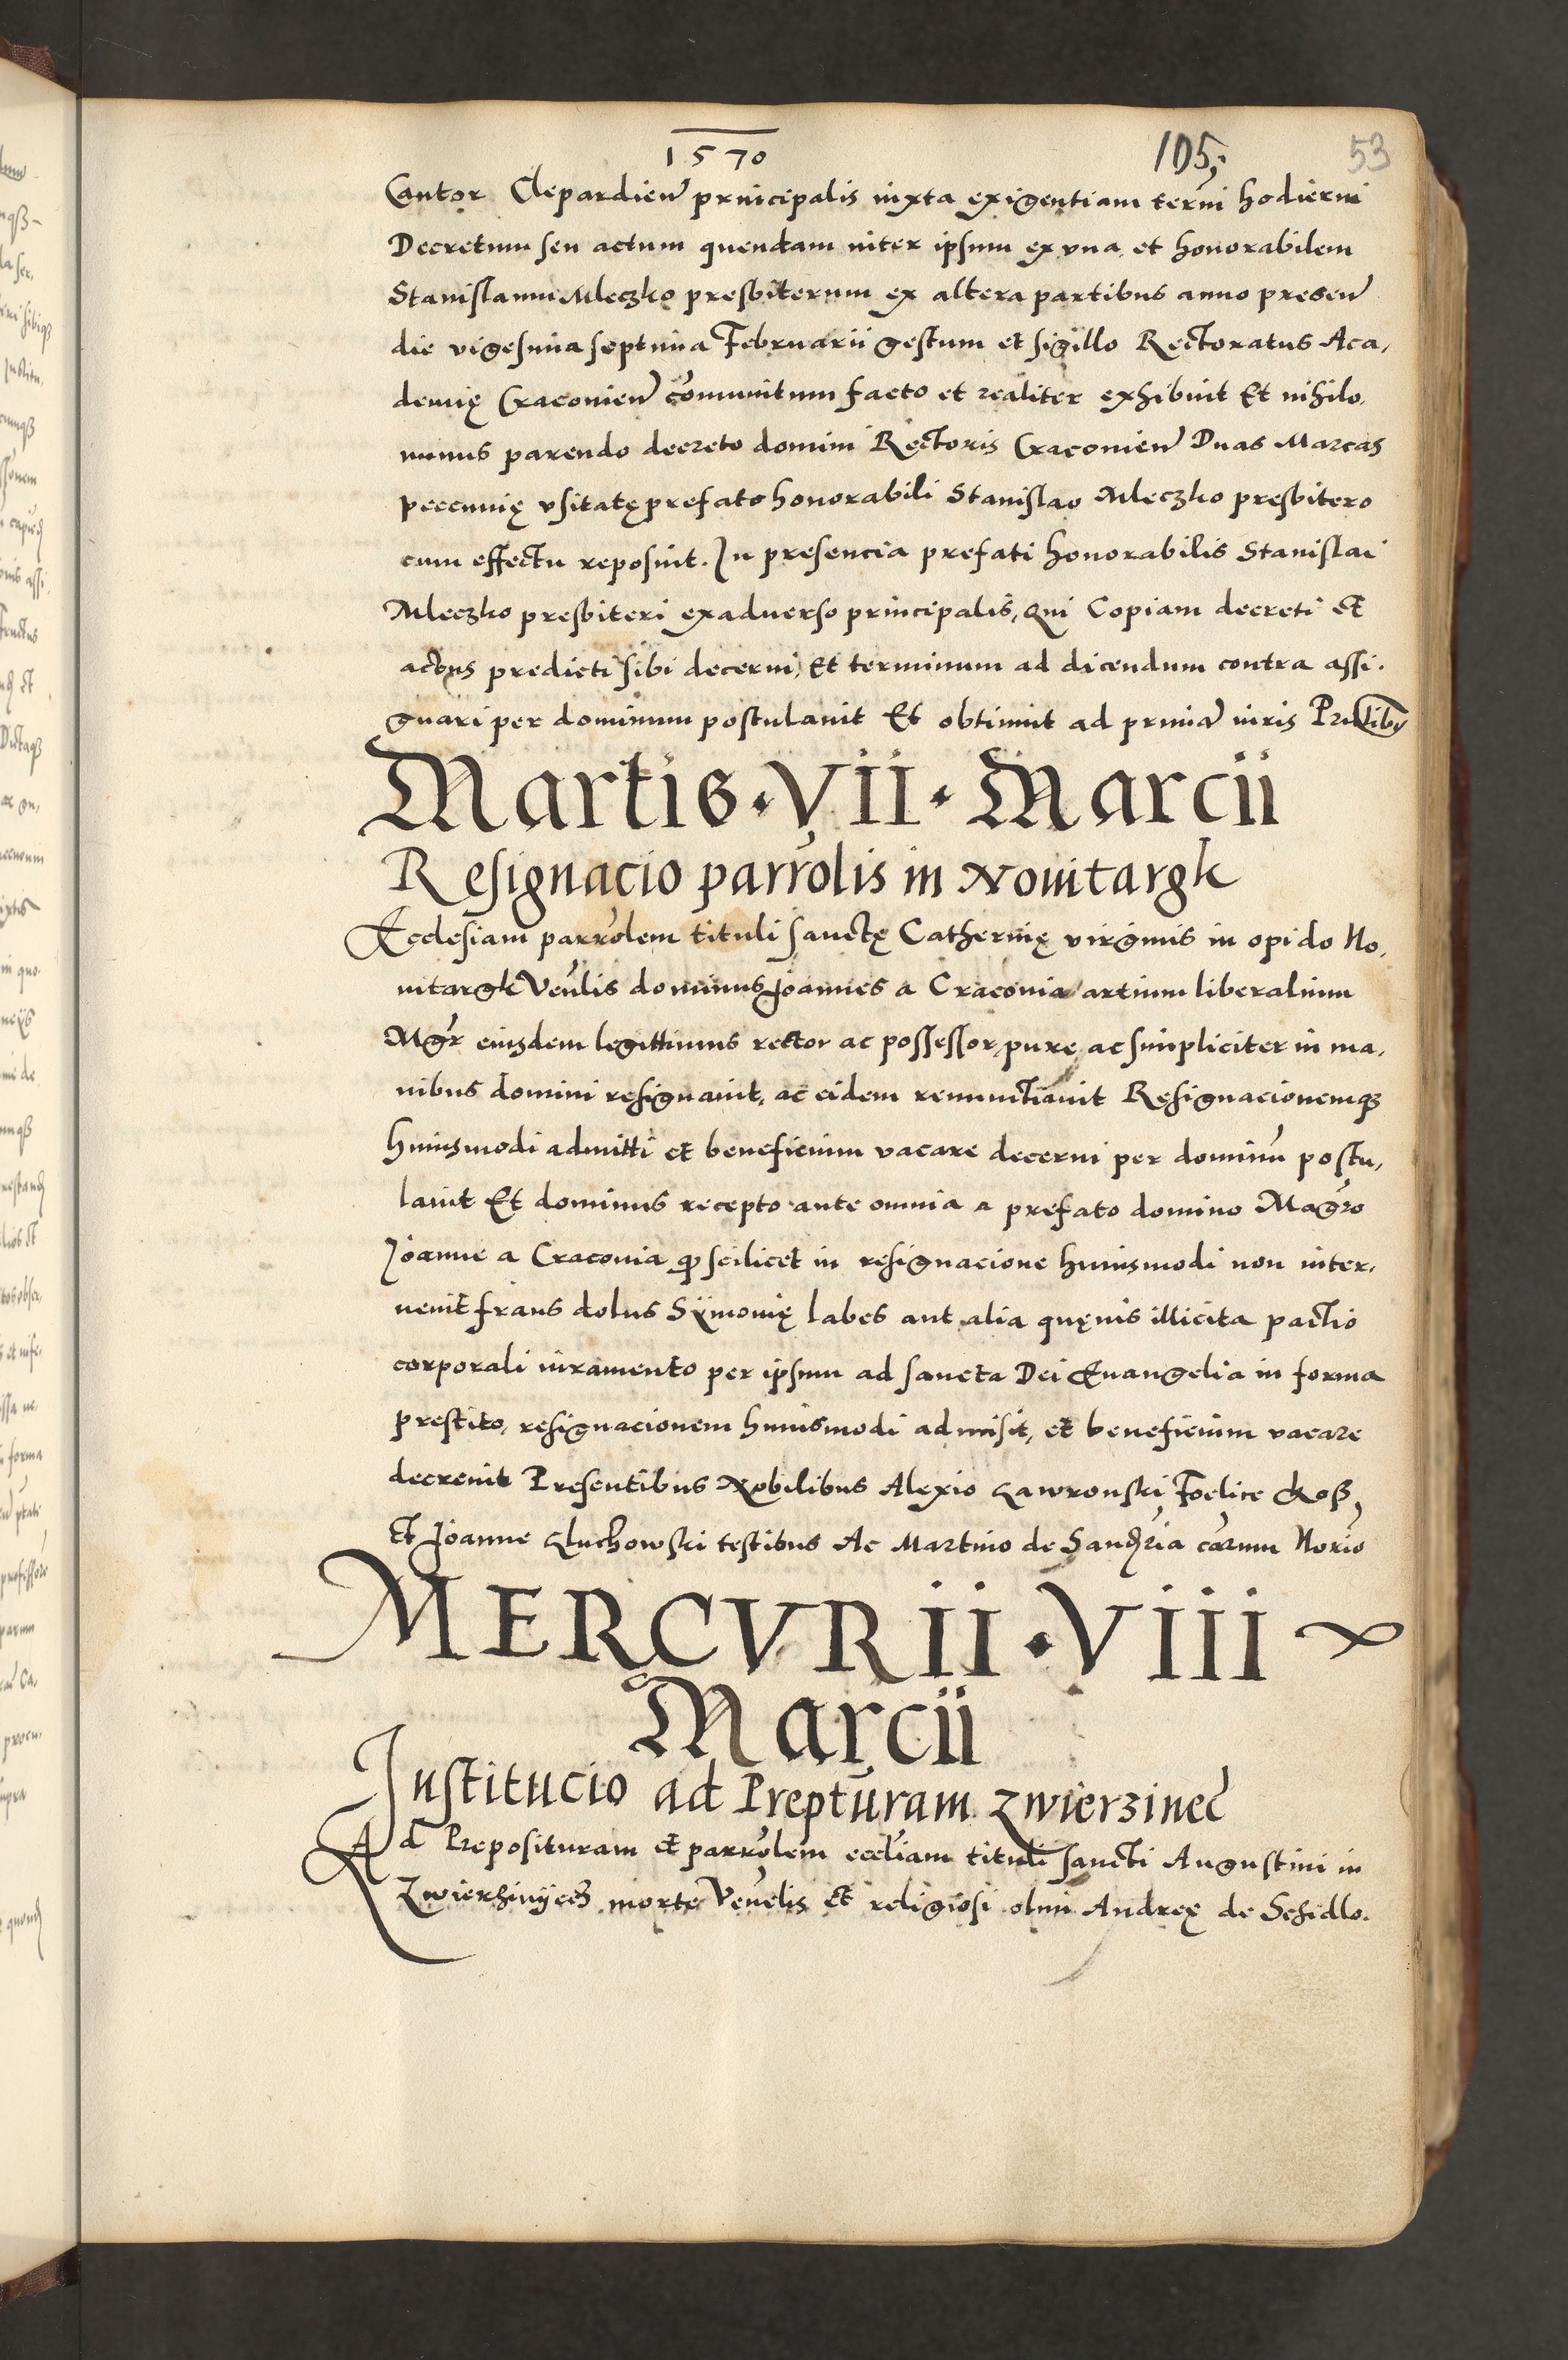 1570
105,
53
Cantor Clepardien principalis iuxta exigentiam termi hodierni
Decretum seu actum quendam inter ipsum ex vna, et honorabilem
Stanislaum Mleczko presbiterum ex altera partibus anno presen
die vigesima septima Februarii gestum et sigillo Rectoratus Aca,
demię Cracovien communitum facto et realiter exhibuit Et nihilo,
minus parendo decreto domini Rectoris Cracovien Duas Marcas
peccunię vsitatę prefato honorabili Stanislao Mleczko presbitero
cum effectu reposuit. In presencia prefati honorabilis Stanislai
Mleczko presbiteri exadverso principalis, qui Copiam decreti et
actus predicti sibi decerni, Et terminum ad dicendum contra assi.
gnari per dominum postulavit Et obtinuit ad primā iuris Pntibus
Martis · VII · Marcii
Resignacio parrolis in Novitargk
Ecclesiam parrolem tituli sanctę Catherinę virginis in opido No,
vitargk Venlis dominus Joannes a Cracovia artium liberalium
Mgr eiusdem legittimus rector ac possessor, pure ac simpliciter in ma,
nibus domini resignavit, ac eidem renunctiavit Resignacionemq3
huiusmodi admitti et beneficium vacare decerni per dominū postu,
lavit Et dominus recepto ante omnia a prefato domino Magro
Joanne a Cracovia q scilicet in resignacione huiusmodi non inter,
venit fraus dolus Sÿmonię labes aut alia quęvis illicita pactio
corporali iuramento per ipsum ad sancta Dei Evangelia in forma
prestito, resignacionem huiusmodi admisit, et beneficium vacare
decrevit Presentibus Nobilibus Alexio Gawronski Foelice Koß,
Et Joanne Gluchowski testibus Ac Martino de carum Norio
MERCVRII · VIII
Marcii
Institucio ad Prepturam Zwierzinec
Ad Preposituram et parrolem eccliam tituli sancti Augustini in
Zwierzinÿecz morte Venelis et religiosi olim Andreę de Schidlo.